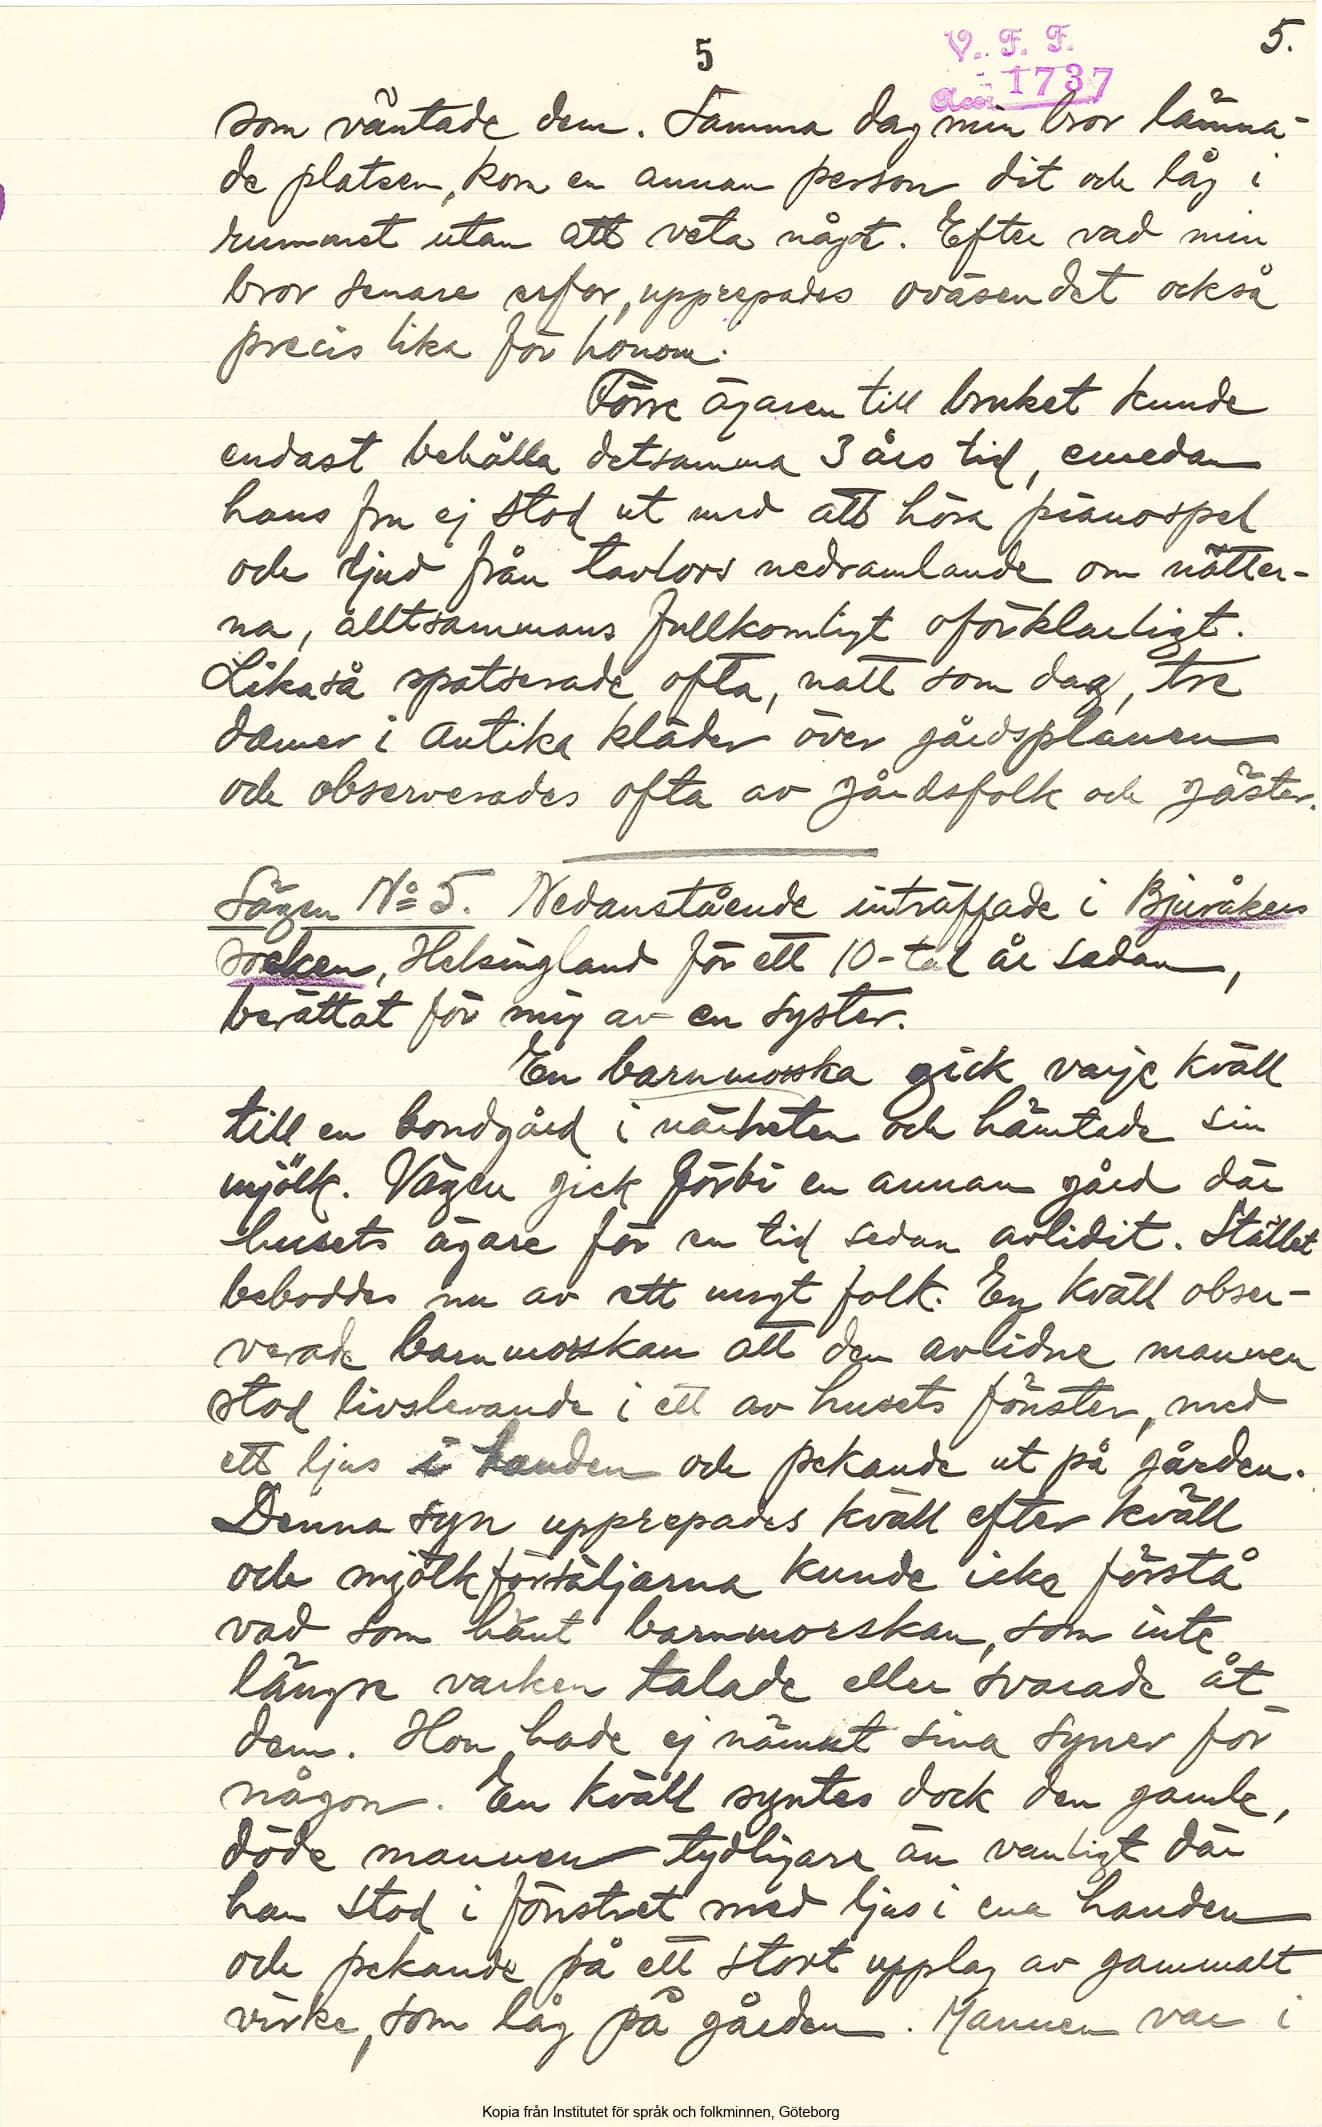 5
V. F. F.
5.
Acc: 1737
som väntade dem. Samma dag min bror lämna-
de platsen, kom en annan person dit och låg i
rummet utan att veta något. Efter vad min
bror senare erfor, upprepades oväsendet också
precis lika för honom.
Förre ägaren till bruket kunde
endast behålla detsamma 3 års tid, emedan
hans fru ej stod ut med att höra pianospel
och ljud från tavlors nedramlande om nätter-
na, alltsammans fullkomligt oförklarligt.
Likaså spatserade ofta, natt som dag, tre
damer i antika kläder över gårdsplanen
och observerades ofta av gårdsfolk och gäster.
Sägen No 5. Nedanstående inträffade i Bjuråkers
socken, Helsingland för ett 10-tal år sedan,
berättat för mig av en syster.
En barnmorska gick varje kväll
till en bondgård i närheten och hämtade sin
mjölk. Vägen gick förbi en annan gård där
husets ägare för en tid sedan avlidit. Stället
beboddes nu av ett ungt folk. En kväll obser-
verade barnmorskan att den avlidne mannen
stod livslevande i ett av husets fönster, med
ett ljus i handen och pekande ut på gården.
Denna syn upprepades kväll efter kväll
och mjölkförsäljarna kunde icke förstå
vad som hänt barnmorskan, som inte
längre varken talade eller svarade åt
dem. Hon hade ej nämnt sina syner för
någon. En kväll syntes dock den gamle,
döde mannen tydligare än vanligt där
han stod i fönstret med ljus i ena handen
och pekande på ett stort upplag av gammalt
virke, som låg på gården. Mannen var i
Kopia från Institutet för språk och folkminnen, Göteborg